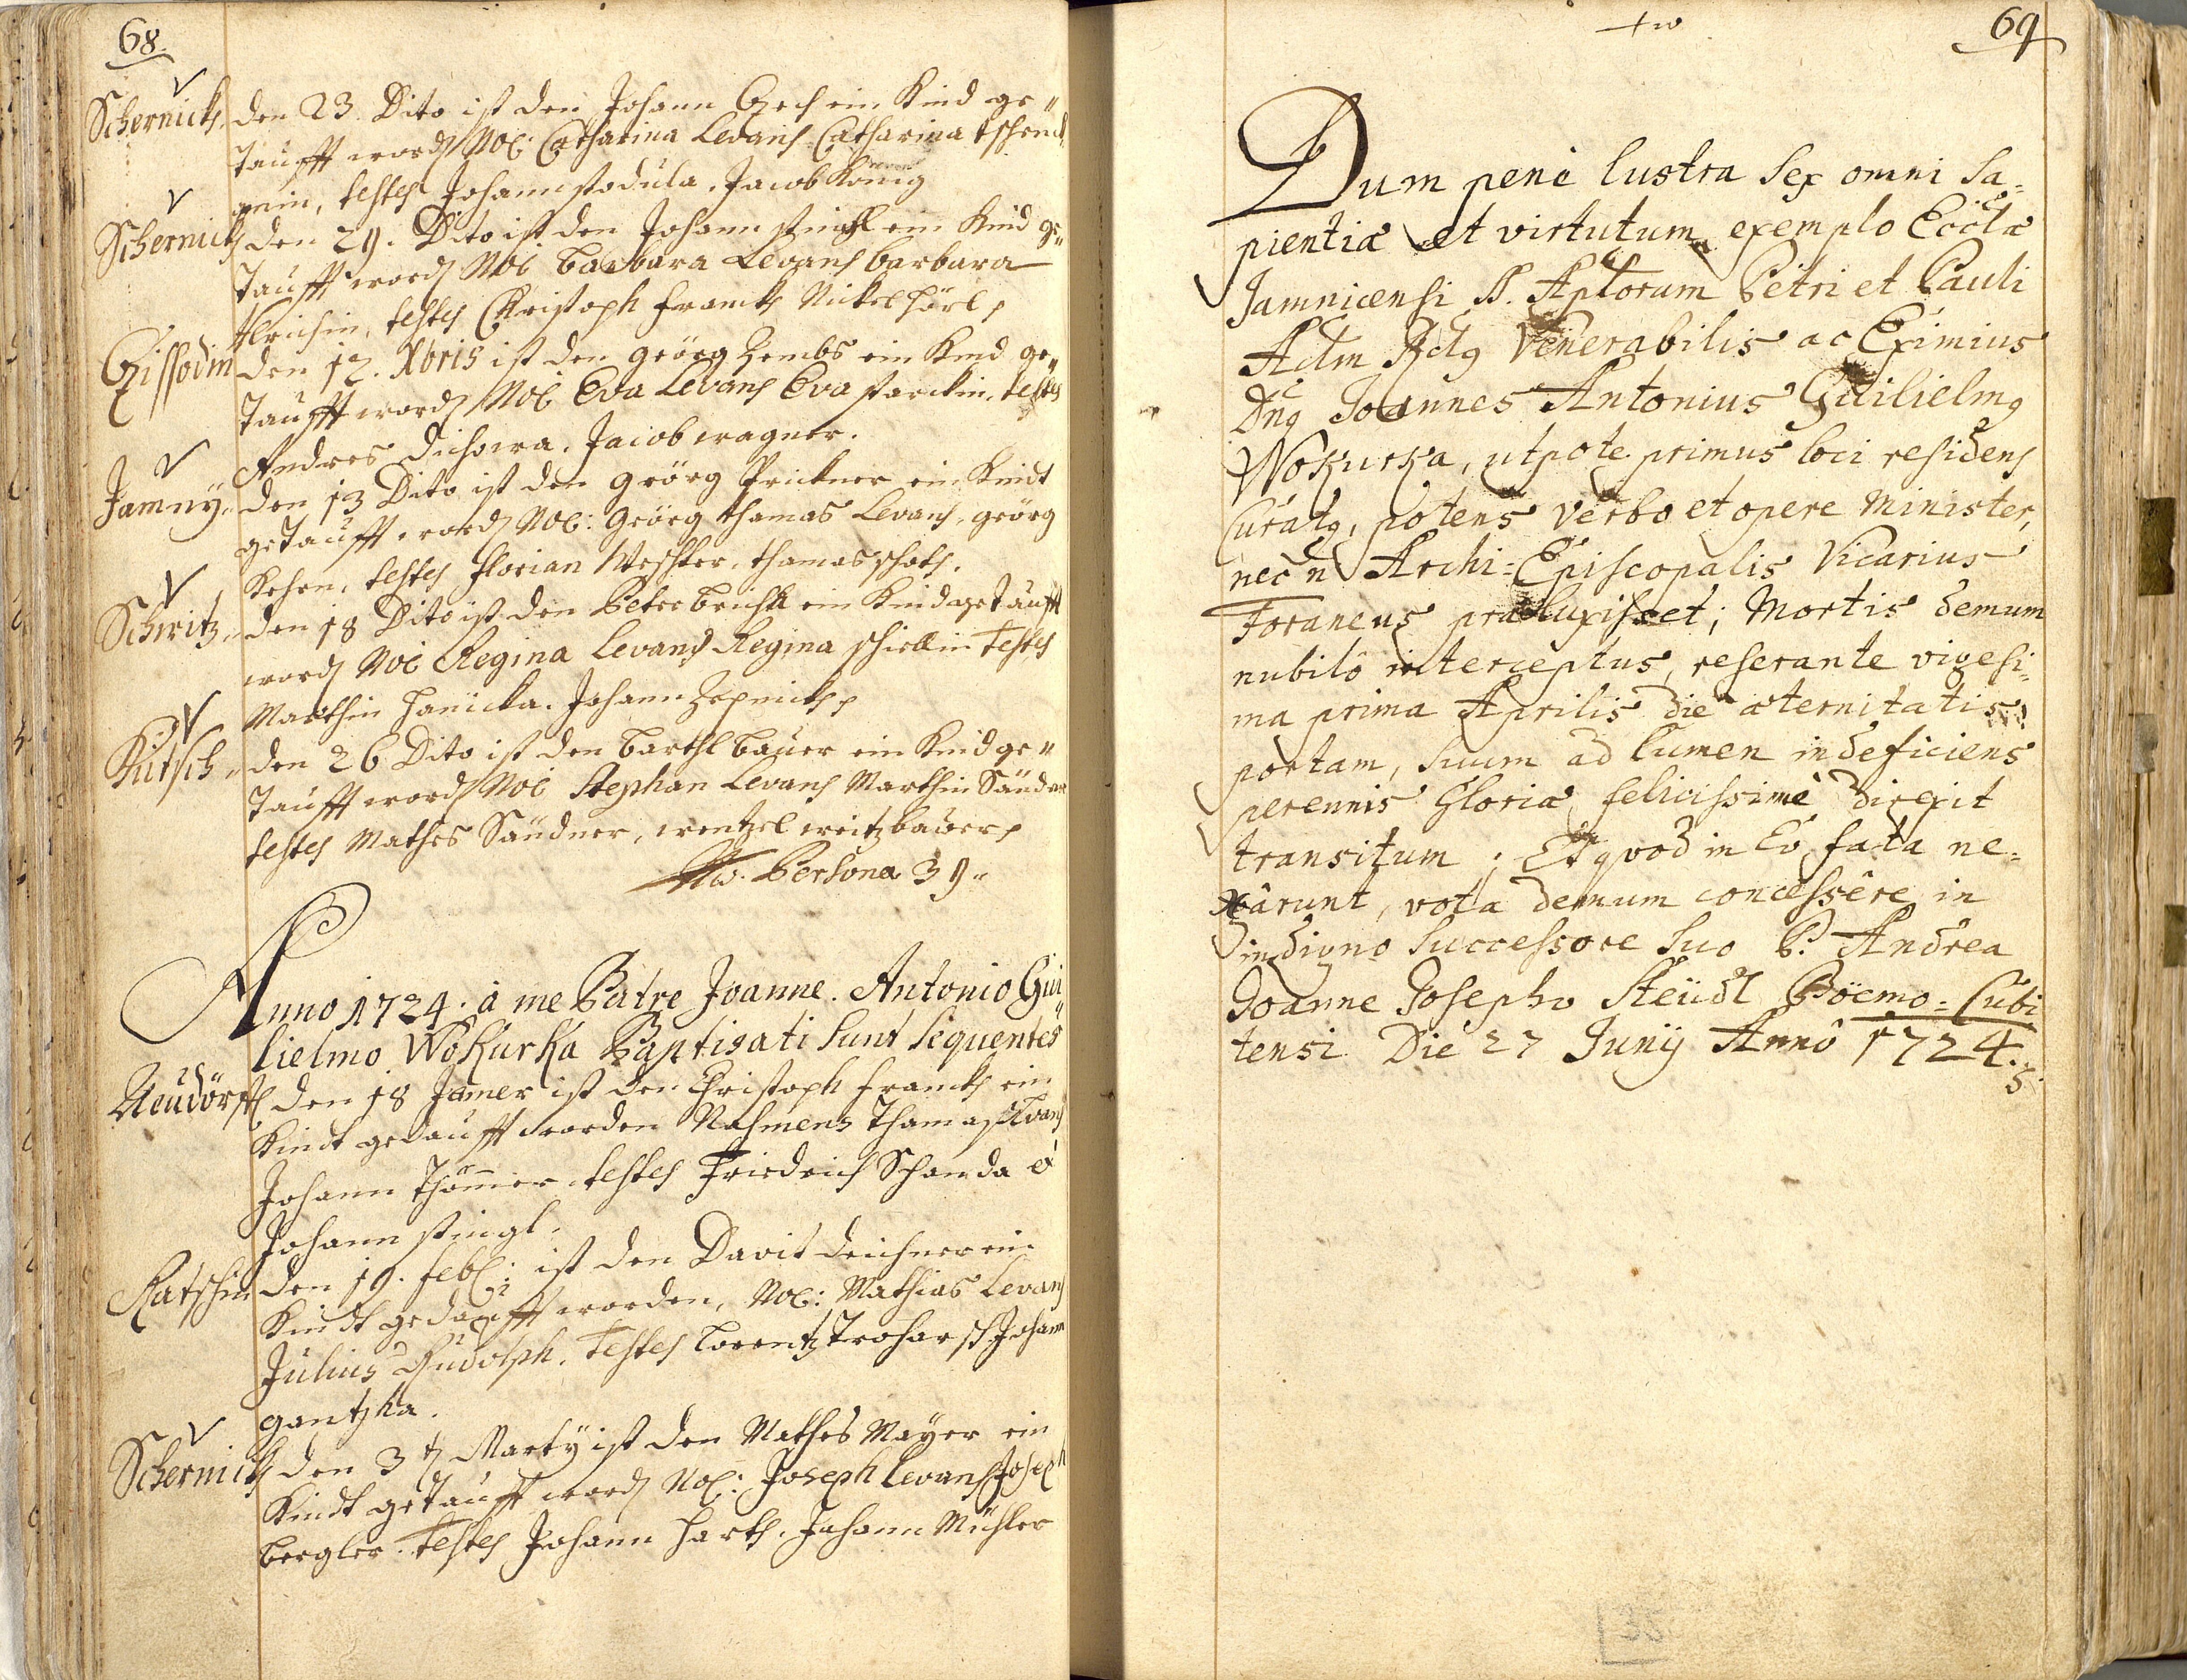 68.
Schernick. den 23. Dito ist den Johann Czech ein Kind ge„
Taufft word Noe: Catharina Levans Catharina
testes Johann stodula. Jacob König
Schernick den 29. Dito ist den Johann stingl ein Kind ge„
Taufft word Noe Barbara Levans barbara
testes Christoph franck Nickel hörl
Gissodin den 12. Xbris ist den geörg Zembs ein Kind ge„
Taufft word Noe Eva Levans Eva starckin, testes
Andres Dichowa. Jacob wagner.
Jamnÿ„ den 13 Dito ist den geörg Prickner ein Kindt
getaufft word Noe: Geörg thamas Levans, geörg
testes florian Weschker, thamas
Schwitz„ den 18 Dito ist den Peter ein Kind getaufft
word Noe Regina Levans Regina testes
Marthin hanicka. Johann
Kutsch„ den 26 Dito ist den barthl bauer ein Kind ge„
Taufft word Noe Stephan Levans Marthin Säudner
testes Mathes Säudner, wentzel weitzbauer
No. Persona 39„
Anno 1724. à me Patre Joanne. Antonio Gui„
lielmo Wokurka Baptisati Sunt Sequentes
Neudörffl den 18 Jäner ist den Christoph franck ein
Kindt gedaufft worden Nahmens Thamas Levans
Johann testes Friedrich Schanda et
Johann stingl.
Ratschin den 19. feb: ist den Davit deichner ein
Kindt gedaufft worden, Noe: Mathias Levans
Julius Rudolph. testes Lorentz Johann
gantzka.
Schernick den 3 t Marty ist den Mathes Mayer ein
Kindt getaufft word Noe: Joseph Levans Joseph
bergler. testes Johann hark. Johann Mühler
69
Dum penè lustra Sex omni Sa=
pientiæ et virtutum exemplo Eccla
Jamnicensi SS. Aplorum Petri et Pauli
Adm Rdg Venerabilis ac Eximius
Dng Joannes Antonius Guilielmg
Wokurka, utpote primus loci residens
Curatg, potens verbo et opere Minister,
nec n Archi=Episcopalis Vicarius
Foraneus præluxisset; Mortis demum
nubilô interceptus, reserante vigesi=
ma prima Aprilis die æternitatis
portam, suum ad lumen indeficiens
perennis Gloriæ felicissimè direxit
transitum; Et quod in Eo fata ne=
xârunt, vota demum concessêre in
indigno Successore Suo P. Andrea
Joanne Josepho Steüdl Böemo=Cubi
tensi Die 27 Junÿ Annô 1724.